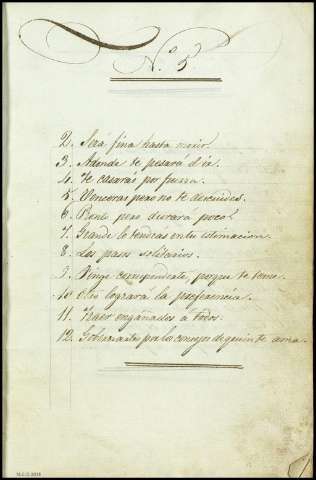 N.º 5
2. Será fina hasta morir.
3. Adonde te pesará el ir.
4. Te casarás por fuerza.
5. Venceras pero no te descuides.
6. Ponto pero durara poco.
7. Grande lo tendras en tu estimacion.
8. Los pasos solitarios.
9. Finge corresponderte, porque te teme.
10. Otro logrará la preferencia.
11. Traer engañados a todos.
12. Gobernarte por los consejos de quien te ama.